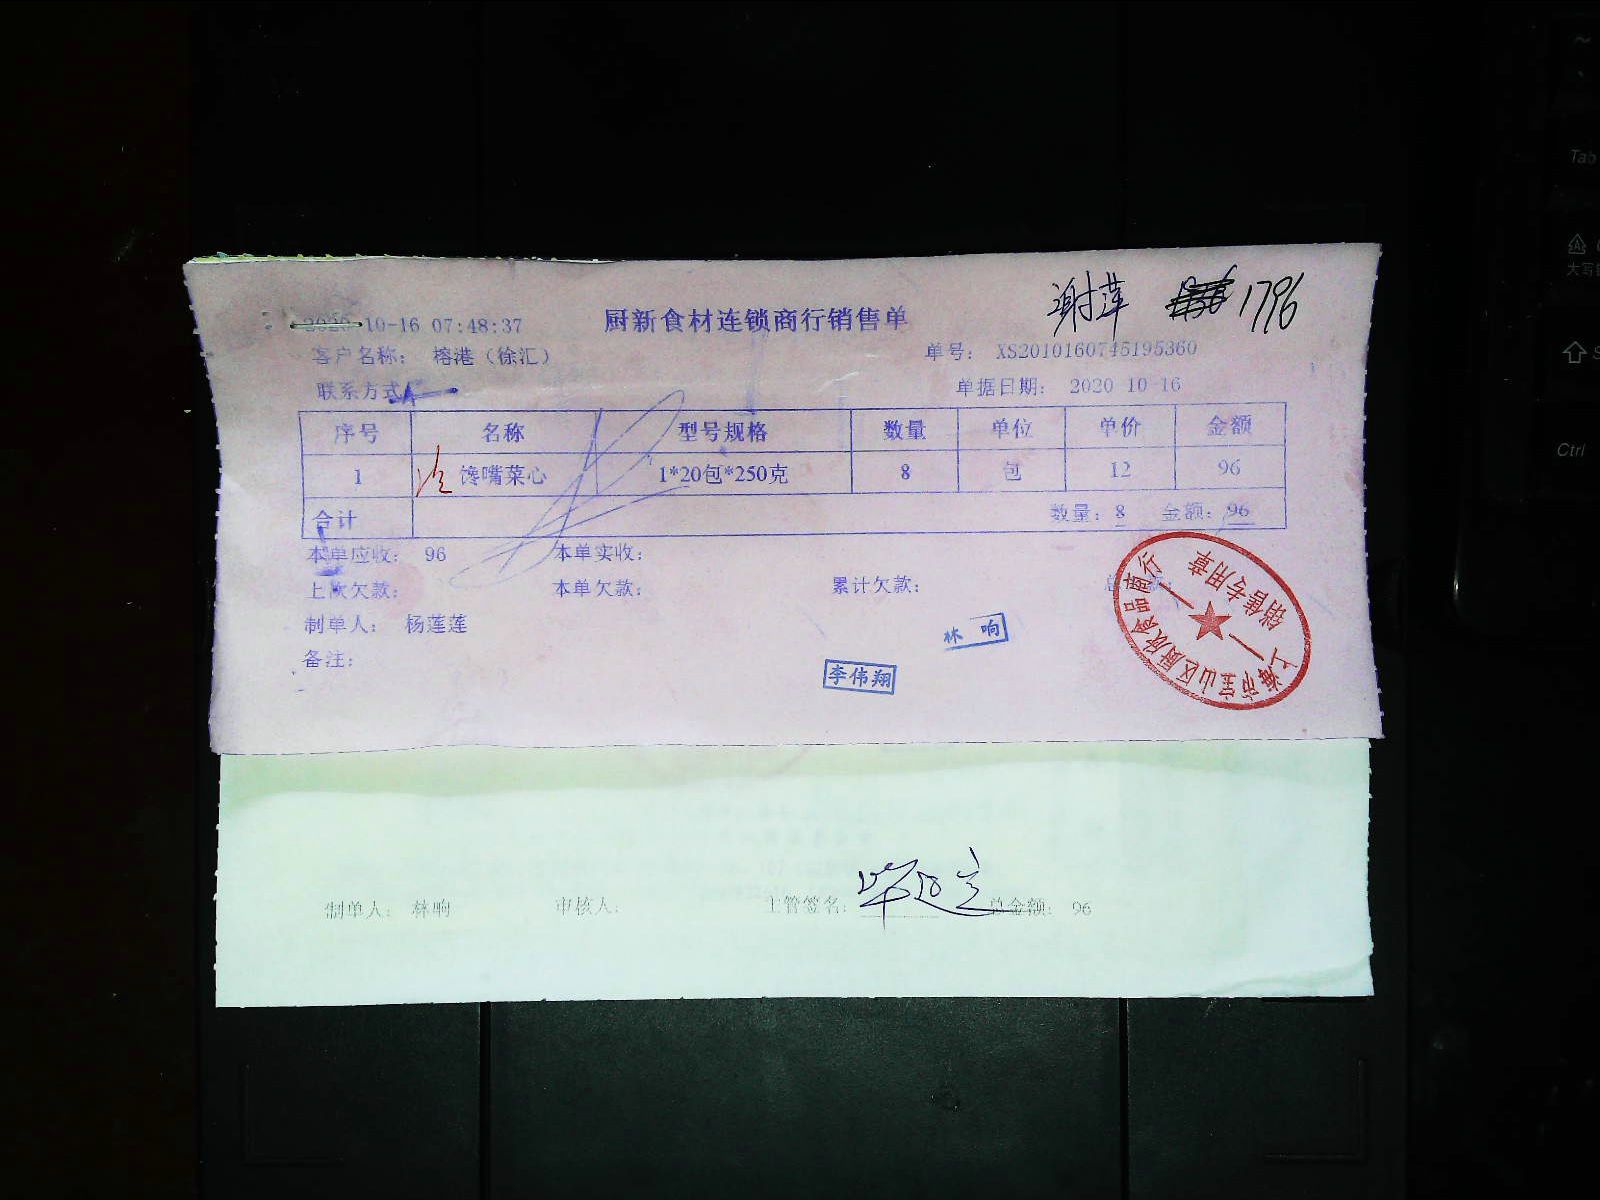 谢萍 1796
2020-10-16 07:48:37 厨新食材连锁商行销售单
客户名称： 榕港（徐汇） 单号： XS2010160745195360
联系方式 单据日期： 2020 10-16
序号 名称 型号规格 数量 单位 单价 金额
1 馋嘴菜心 1*20包*250克 8 包 12 96
合计 数量：8 金额：96
本单应收： 96 本单实收：
上次欠款： 本单欠款： 累计欠款： 总
制单人： 杨莲莲
备注：
林响
李伟翔
上海市宝山区厨欣食品商行
销售专用章
制单人： 林响 审核人： 主管签名： 总金额： 96
Tab
大写
Ctrl